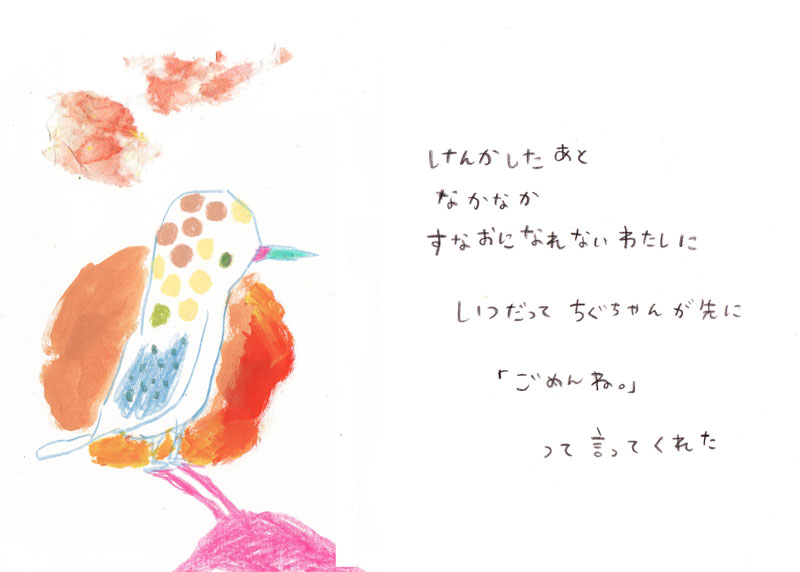 けんかしたあと
なかなか
すなおになれないわたしに
しいつだって ちぐちゃんが先に
「ごめんね。」
って言ってくれた